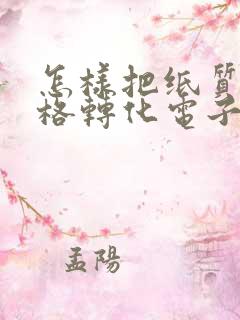 怎樣把纸質
格轉化電子
孟陽